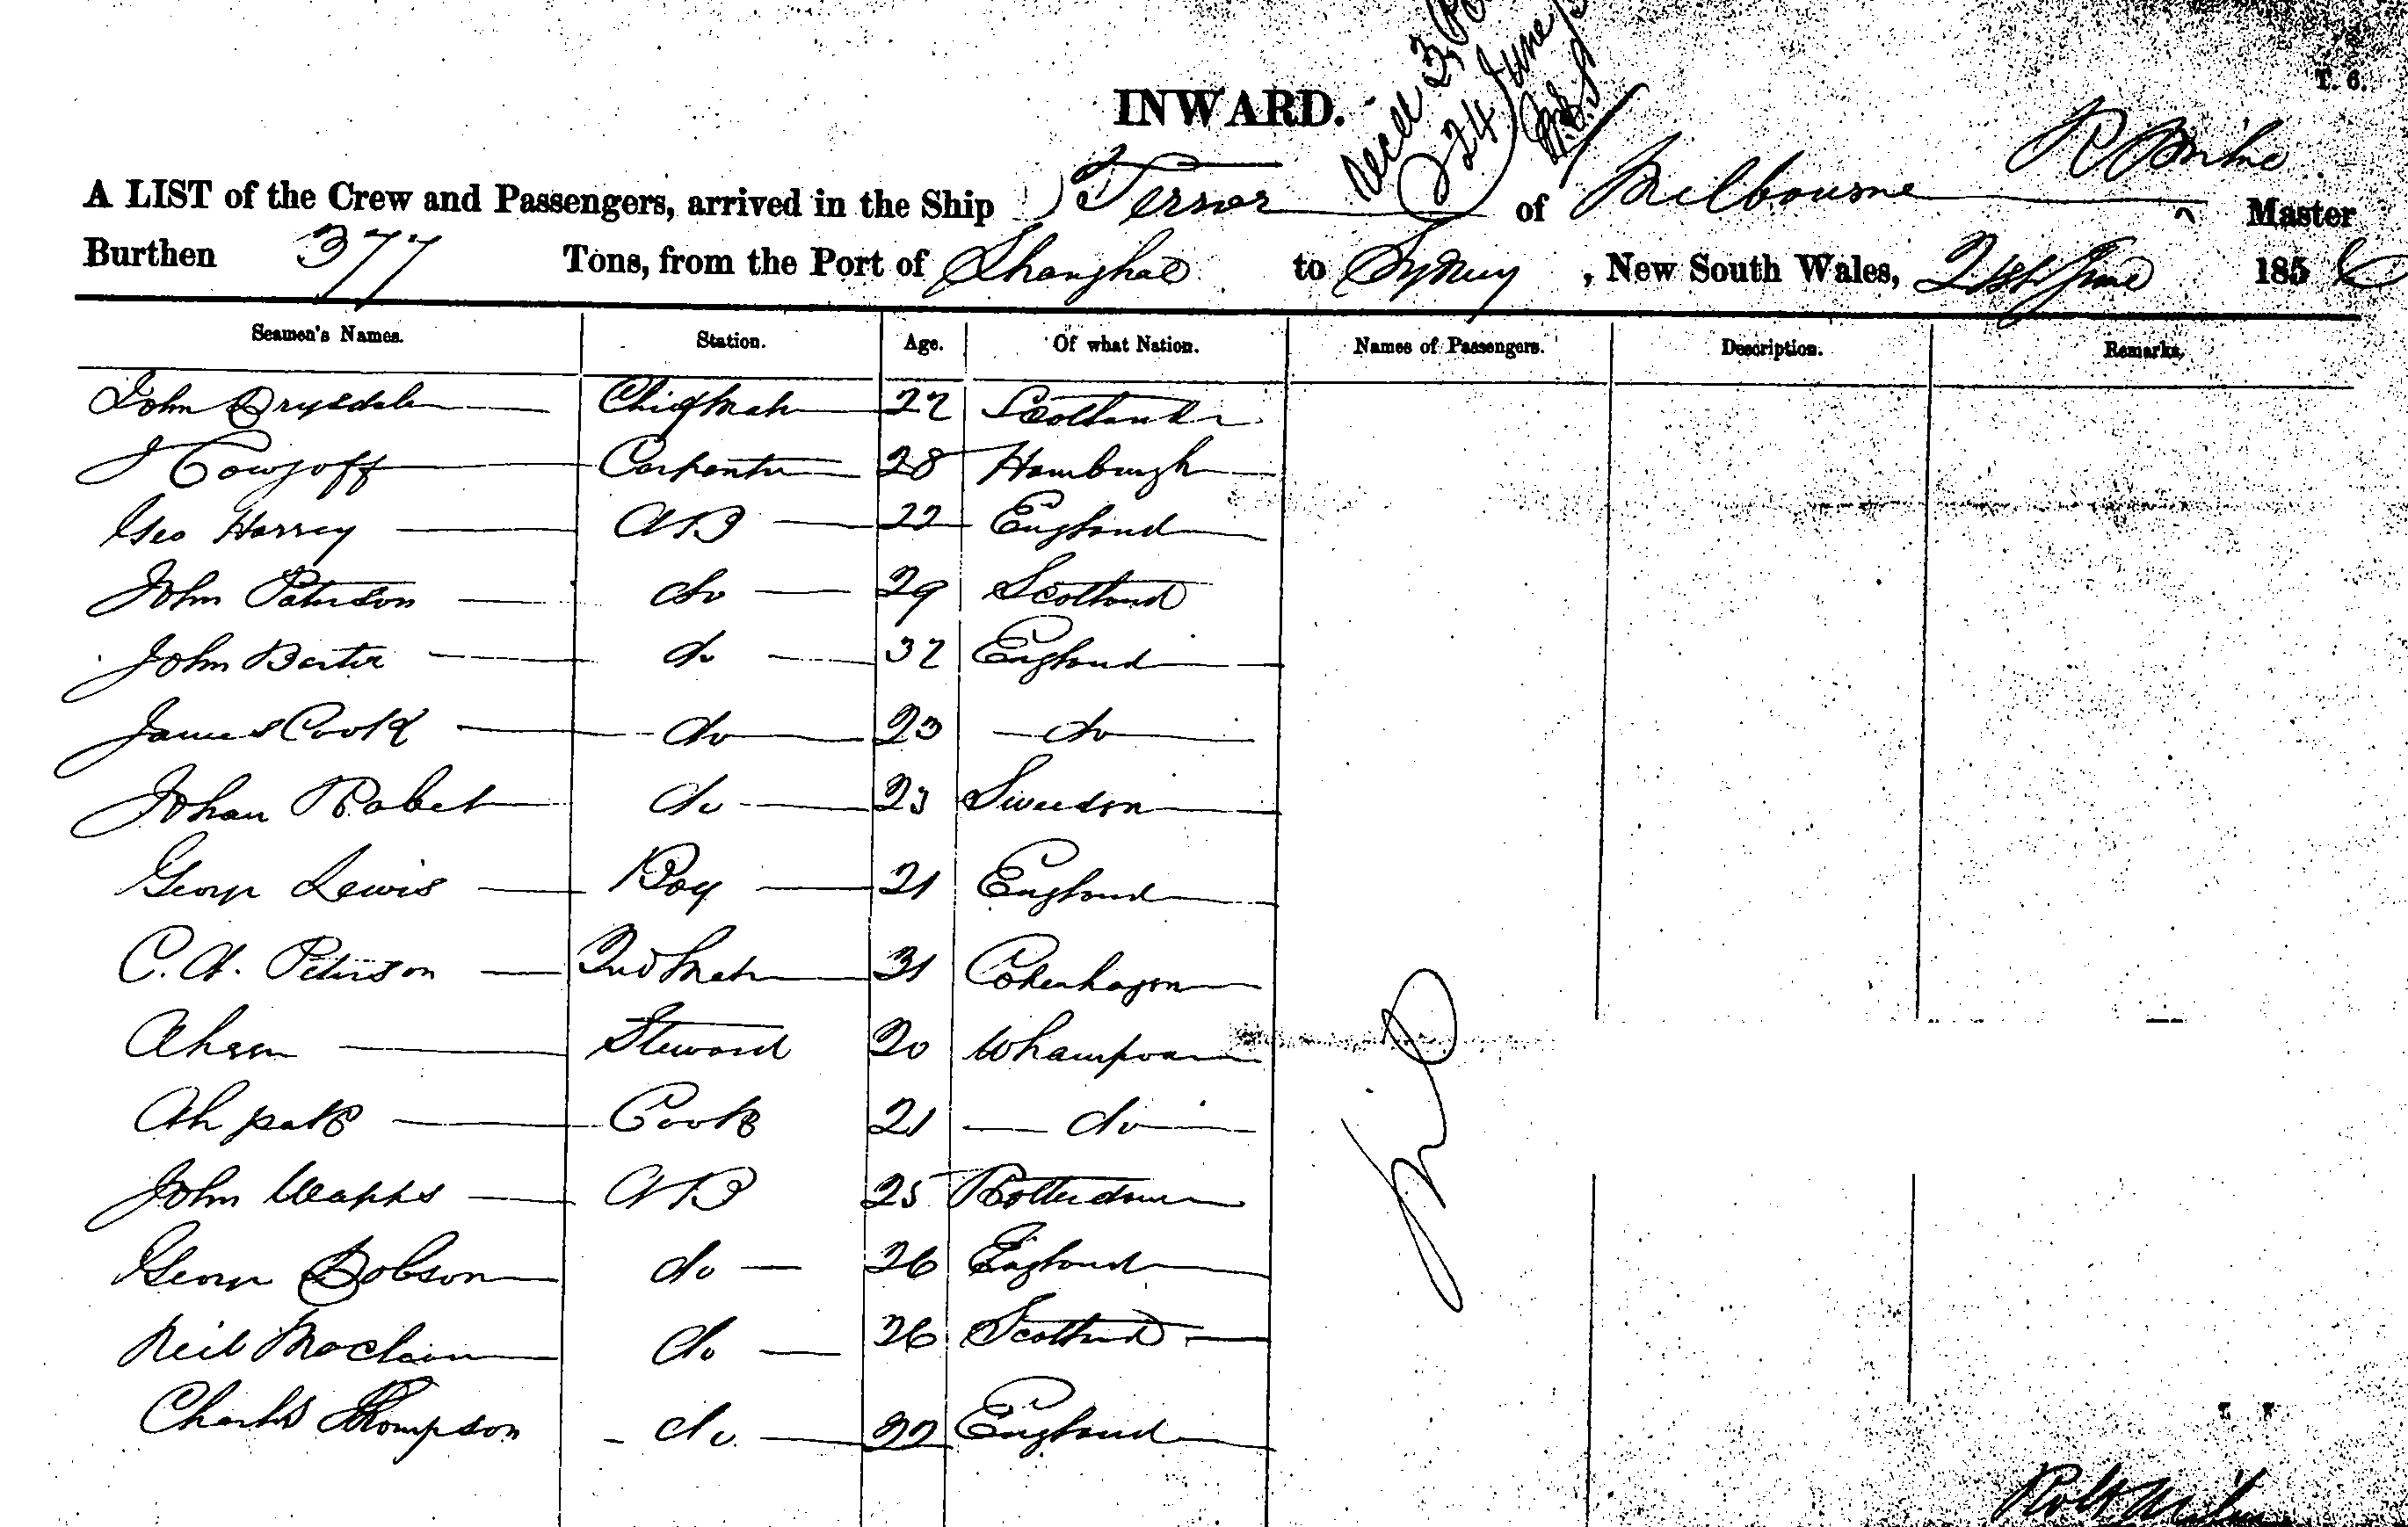 T. 6.
INWARD.
24 June
A LIST of the Crew and Passengers, arrived in the Ship Terror of Melbourne R Milne Master
Burthen 377 Tons, from the Port of Shanghae to Sydney, New South Wales, 21st June 1856
Seamen's Names. Station. Age. Of what Nation. Names of Passengers. Description. Remarks.
John Drysdale Chief Mate 22 Scotland
J Carpenter 28 Hamburgh
Geo Harvey AB 22 England
John Paterson do 29 Scotland
John Barter do 32 England
James Cook do 23 do
Johan Rabet do 23 Sweden
George Lewis Boy 21 England
C. A. Peterson 2nd Mate 31 Copenhagen
Steward 20 Whampoa
Ah pak Cook 21 do
John AB 25 Rotterdam
George Dobson do 26 England
Neil Maclain do 26 Scotland
Charles Thompson do 22 England
Nil
Robt Milne